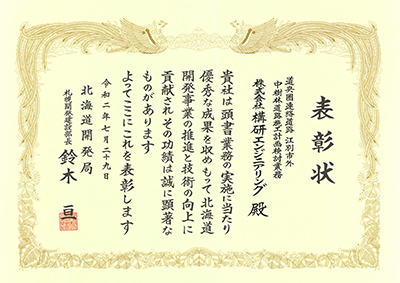 表彰状
道央圏連絡道路 江別市外
中樹林道路施工計画検討業務
株式会社 構研エンジニアリング 殿
貴社は頭書業務の実施に当たり
優秀な成果を収めもって北海道
開発事業の推進と技術の向上に
貢献されその功績は誠に顕著な
ものがあります
よってここにこれを表彰します
令和二年七月二十九日
北海道開発局
札幌開発建設部長 鈴木 亘